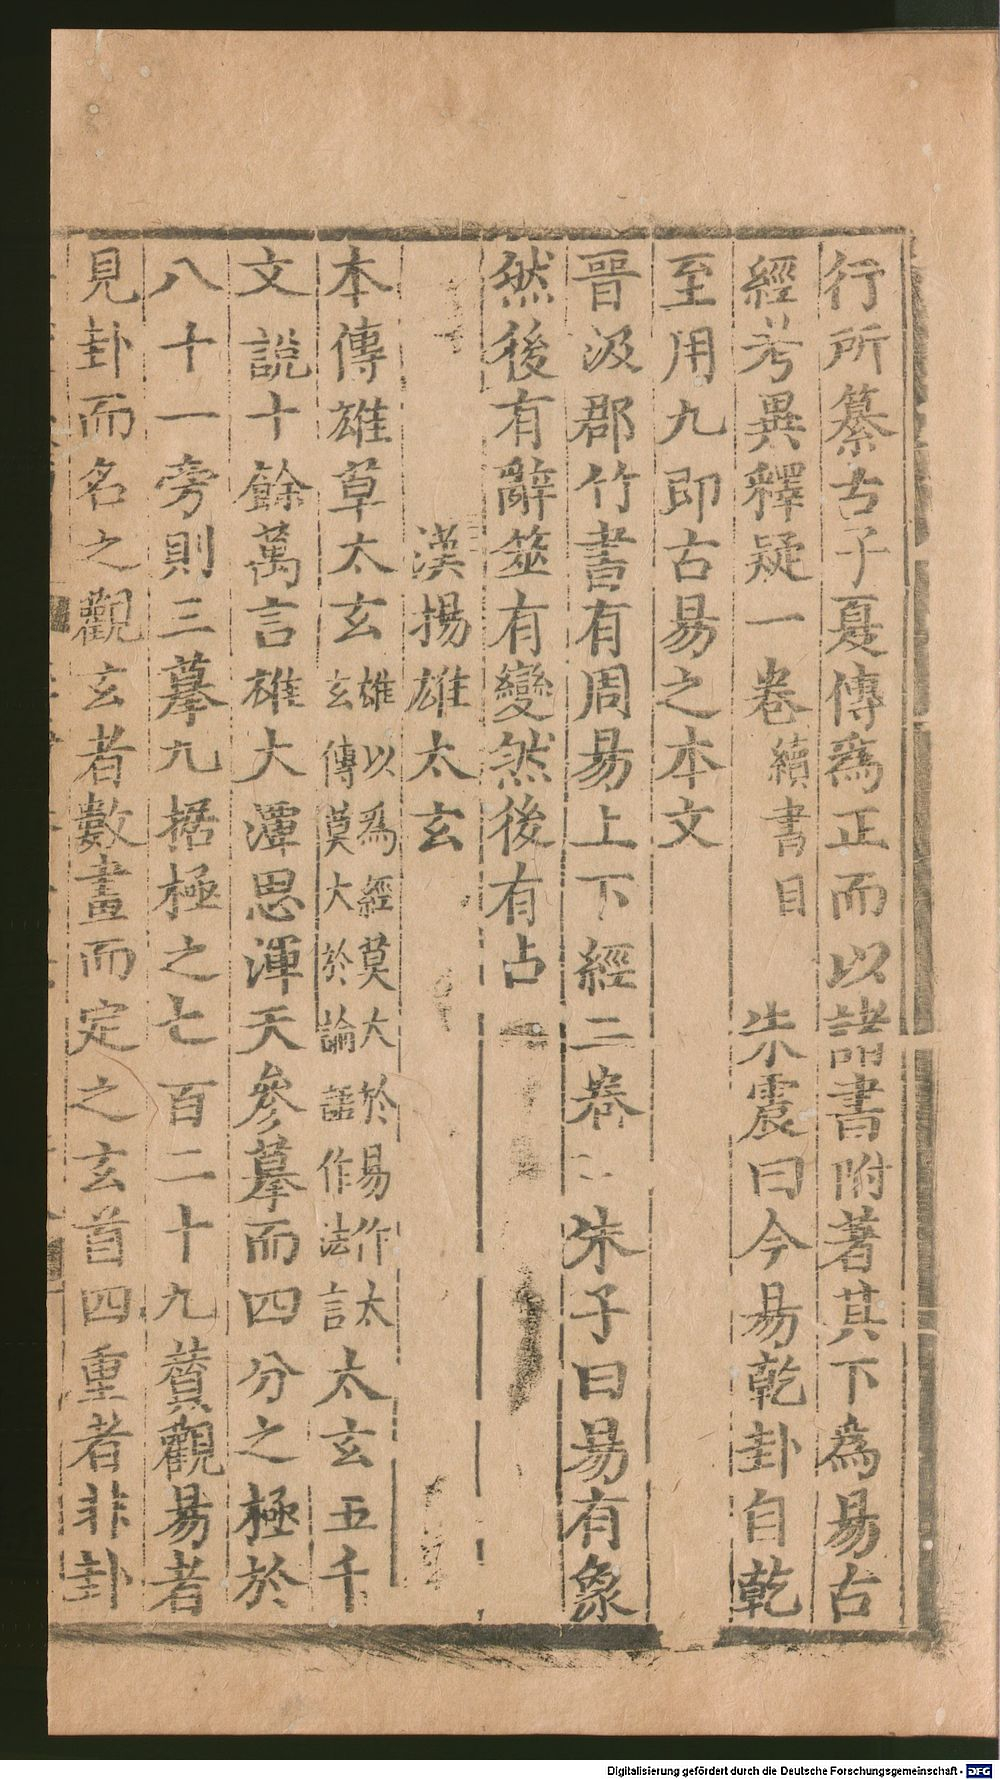 行所纂古子夏傳爲正而以諸書附著其下為易古
經考異釋疑一卷續書目 朱震曰今易乾卦自乾
至用九即古易之本文
晉汲郡竹書有周易上下經二卷 朱子曰易有象
然後有辭筮有變然後有占
漢揚雄太玄
本傳雄草太玄雄以爲經莫大於易作太玄傳莫大於論語作法言太玄五千
文說十餘萬言雄大潭思渾天參摹而四分之極於
八十一旁則三摹九据極之七百二十九贊觀易者
見卦而名之觀玄者數畫而定之玄首四重者非卦
Digitalisierung gefördert durch die Deutsche Forschungsgemeinschaft - DFG